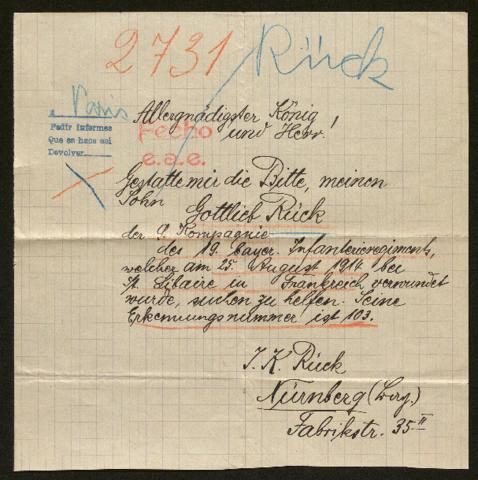 2731 Rück
a Paris
Pedir informes
Que se hace así
Devolver
Fecho
e.a.e.
Allergnädigster König
und Herr!
Gestatte mir die Bitte, meinen
Sohn Gottlieb Rück
der 9. Kompagnie
des 19. bayer. Infanterieregiments,
welcher am 25. August 1914 bei
St. Libaire in Frankreich verwundet
wurde, suchen zu helfen. Seine
Erkennungsnummer ist 103.
J. K. Rück
Nürnberg
Fabrikstr. 35 II